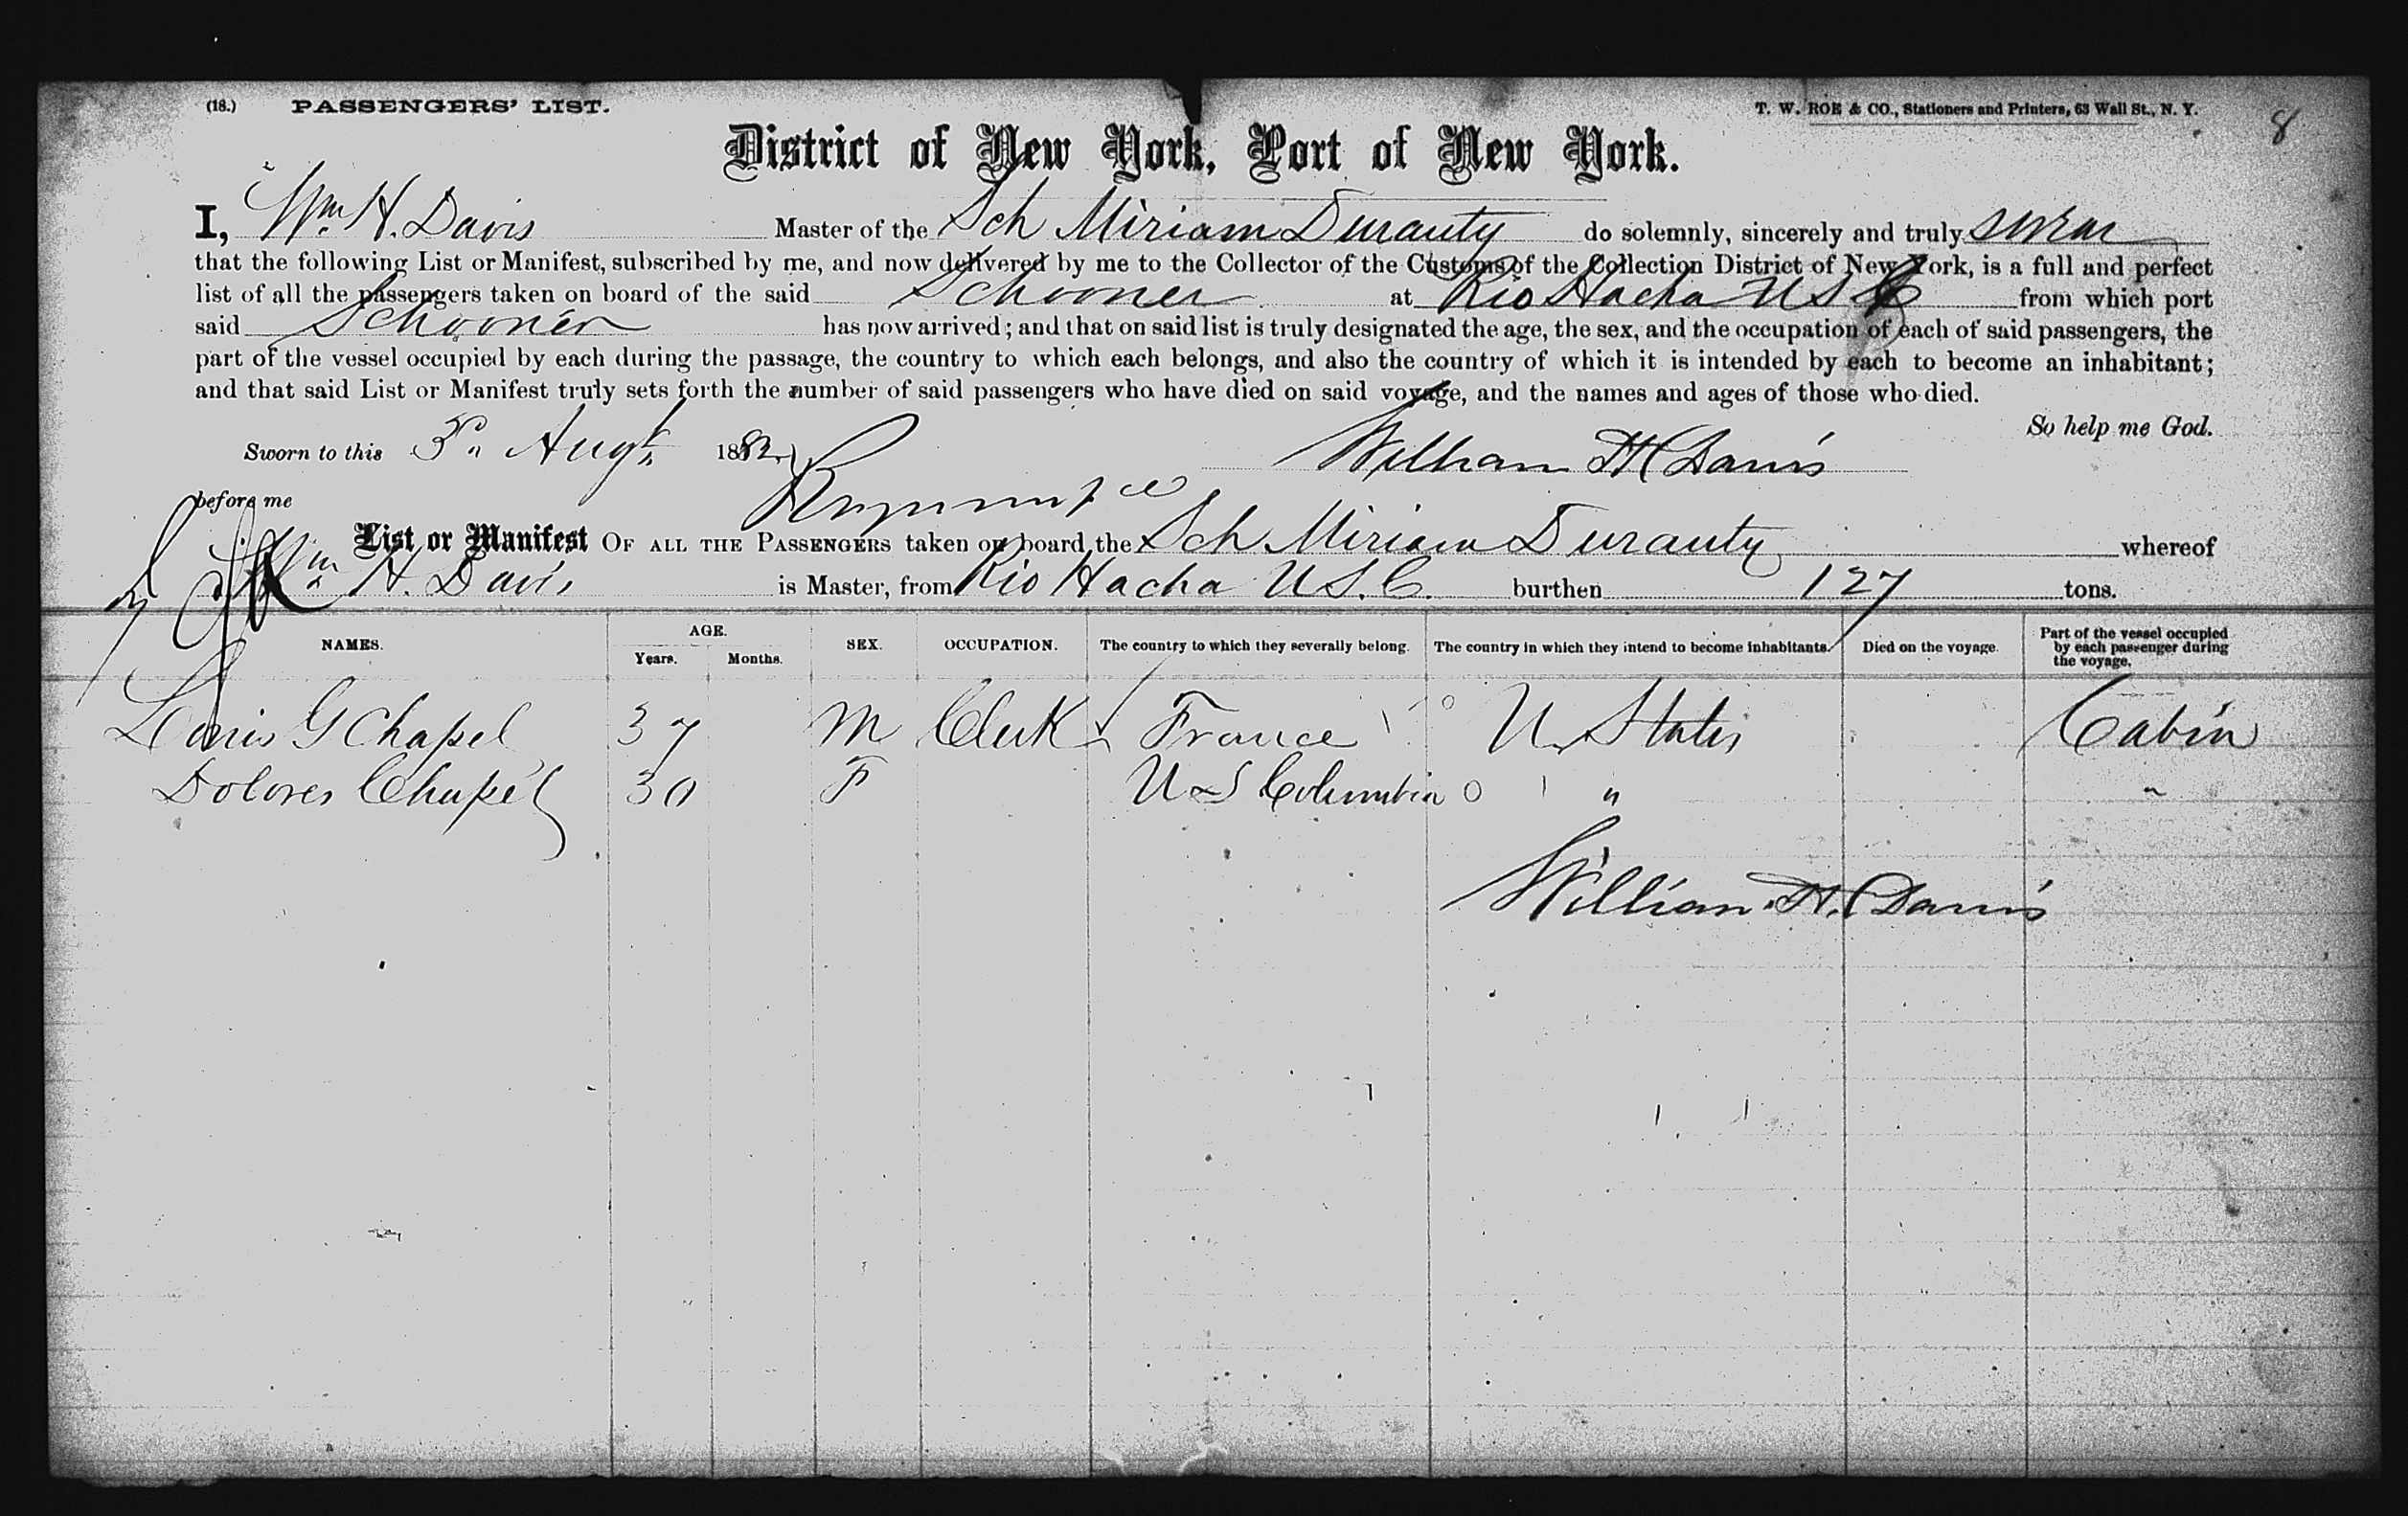 (18.) PASSENGERS' LIST. T. W. ROE & CO., Stationers and Printers, 63 Wall St., N. Y. 8
District of New York, Port of New York.
I, Wm. H. Davis Master of the Sch Miriam Durauty do solemnly, sincerely and truly swear
that the following List or Manifest, subscribed by me, and now delivered by me to the Collector of the Customs of the Collection District of New York, is a full and perfect
list of all the passengers taken on board of the said Schooner at Rio Hacha U S C from which port
said Schooner has now arrived; and that on said list is truly designated the age, the sex, and the occupation of each of said passengers, the
part of the vessel occupied by each during the passage, the country to which each belongs, and also the country of which it is intended by each to become an inhabitant;
and that said List or Manifest truly sets forth the number of said passengers who have died on said voyage, and the names and ages of those who died.
So help me God.
Sworn to this 3 Augt 1882 William H Davis
before me
List or Manifest OF ALL THE PASSENGERS taken on board the Sch Miriam Durauty whereof
Wm H. Davis is Master, from Rio Hacha U S. C. burthen 127 tons.
NAMES. AGE. Years. Months. SEX. OCCUPATION. The country to which they severally belong. The country in which they intend to become inhabitants. Died on the voyage. Part of the vessel occupied by each passenger during the voyage.
Louis G Chapel 37 M Clerk France U. States Cabin
Dolores Chapel 30 F U S Columbia " "
William H. Davis